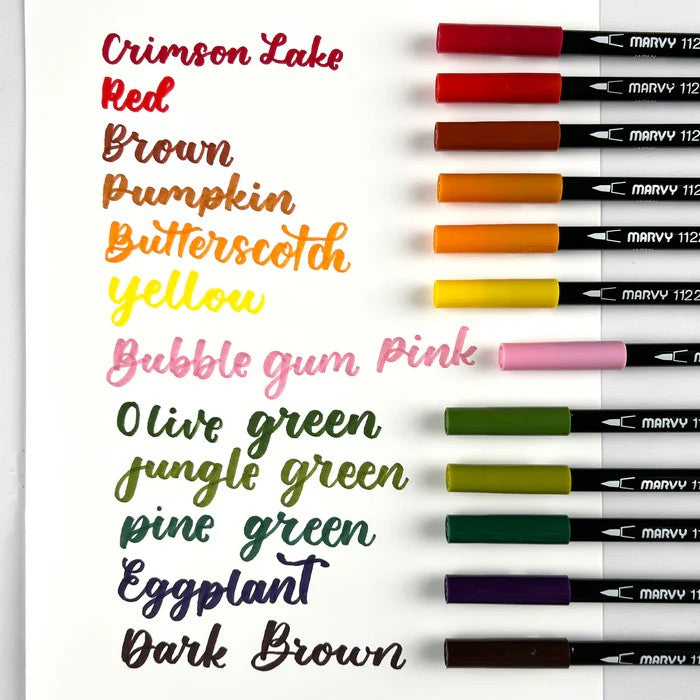 Crimson Lake MARVY 112
JAPAN
Red MARVY 112
Brown MARVY 112
Pumpkin MARVY 112
Butterscotch MARVY 112
Yellow MARVY 1122
Bubble gum pink MA
Olive green MARVY 1
jungle green MARVY 1
pine green MARVY 1
Eggplant MARVY 1
Dark Brown MARVY 11